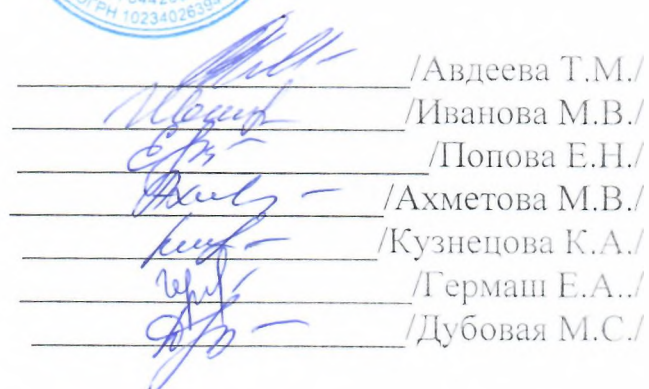 ОГРН 10234026394
/Авдеева Т.М./
/Иванова М.В./
/Попова Е.Н./
/Ахметова М.В./
/Кузнецова К.А./
/Гермаш Е.А../
/Дубовая М.С./